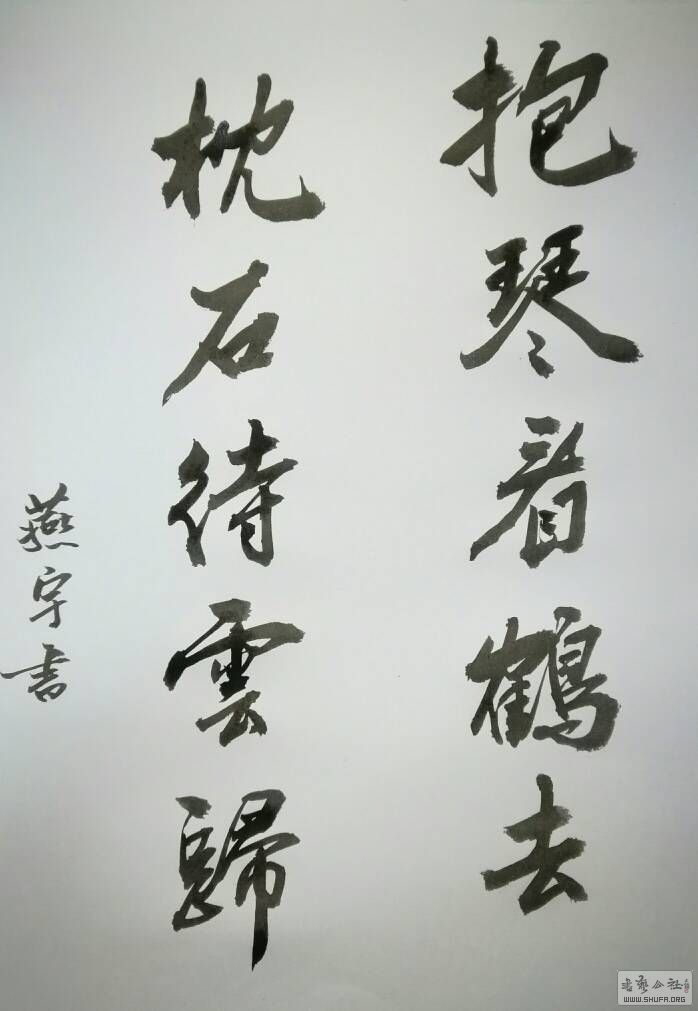 抱琴看鶴去
枕石待雲歸
燕宇書
書藝公社
WWW.SHUFA.ORG